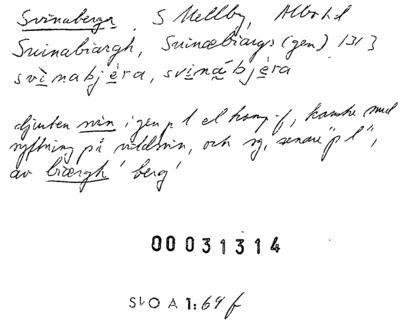 Svinaberga, S Mellby, Albo hd
Svinabiargh, Svinæbiargs (gen) 1313
svìnabjéra, svinábjèra
djurten svin i gen pl el komp-f, kanske med
syftning på vildsvin, och sg, senare "pl",
av biærgh 'berg'
00031314
SlO A 1:64 f